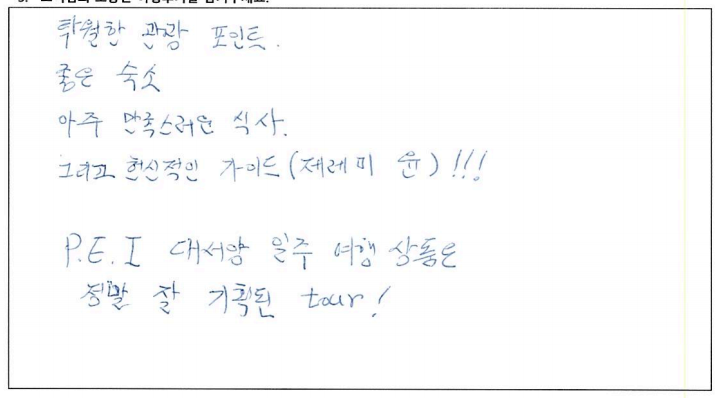 탁월한 관광 포인트.
좋은 숙소
아주 만족스러운 식사.
그리고 헌신적인 가이드 (제레미 윤) !!!
P.E.I 대서양 일주 여행 상품은
정말 잘 기획된 tour!